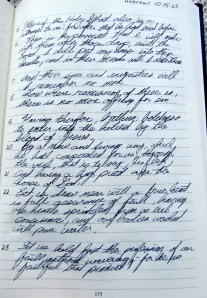 Hebrews 10:15-23
the Holy Ghost also is
to us: for after that he had said before
the
after those days, saith the
Lord I will put my laws into their
hearts, and in their minds will I write them
17 And their sins and iniquities will
I remember no more
18 Now where remission of these is,
there is no more offering for sin
19 Having therefore, brethren boldness
to enter into the holiest by the
blood of Jesus
20 By a new and living way, which
he hath consecrated for us, through
the veil, that is to say, his flesh
21 And having a high priest over the
house of God
22 Let us draw near with a true heart
in full assurance of faith, having
our hearts sprinkled from an evil
conscience, and our bodies washed
with pure water.
23 Let us hold fast the profession of our
faith without wavering - for he is
faithful that promised